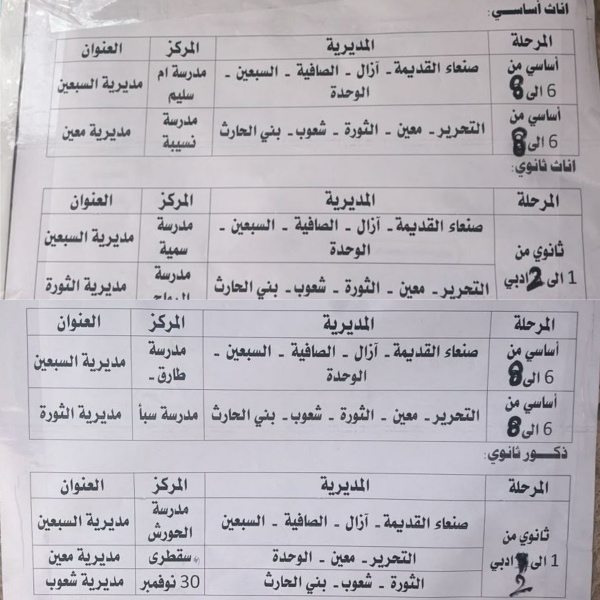 اناث أساسي:
المرحلة المديرية المركز العنوان
أساسي من 6 الى 8 صنعاء القديمة - آزال - الصافية - السبعين - الوحدة مدرسة ام سليم مديرية السبعين
أساسي من 6 الى 8 التحرير - معين - الثورة - شعوب - بني الحارث مدرسة نسيبة مديرية معين
اناث ثانوي:
المرحلة المديرية المركز العنوان
ثانوي من 1 الى 2 ادبي صنعاء القديمة - آزال - الصافية - السبعين - الوحدة مدرسة سمية مديرية السبعين
التحرير - معين - الثورة - شعوب - بني الحارث مدرسة مديرية الثورة
المرحلة المديرية المركز العنوان
أساسي من 6 الى 8 صنعاء القديمة - آزال - الصافية - السبعين - الوحدة مدرسة طارق - مديرية السبعين
أساسي من 6 الى 8 التحرير - معين - الثورة - شعوب - بني الحارث مدرسة سبأ مديرية الثورة
ذكور ثانوي:
المرحلة المديرية المركز العنوان
ثانوي من 1 الى ادبي 2 صنعاء القديمة - آزال - الصافية - السبعين مدرسة الحورش مديرية السبعين
التحرير - معين - الوحدة سقطرى مديرية معين
الثورة - شعوب - بني الحارث 30 نوفمبر مديرية شعوب